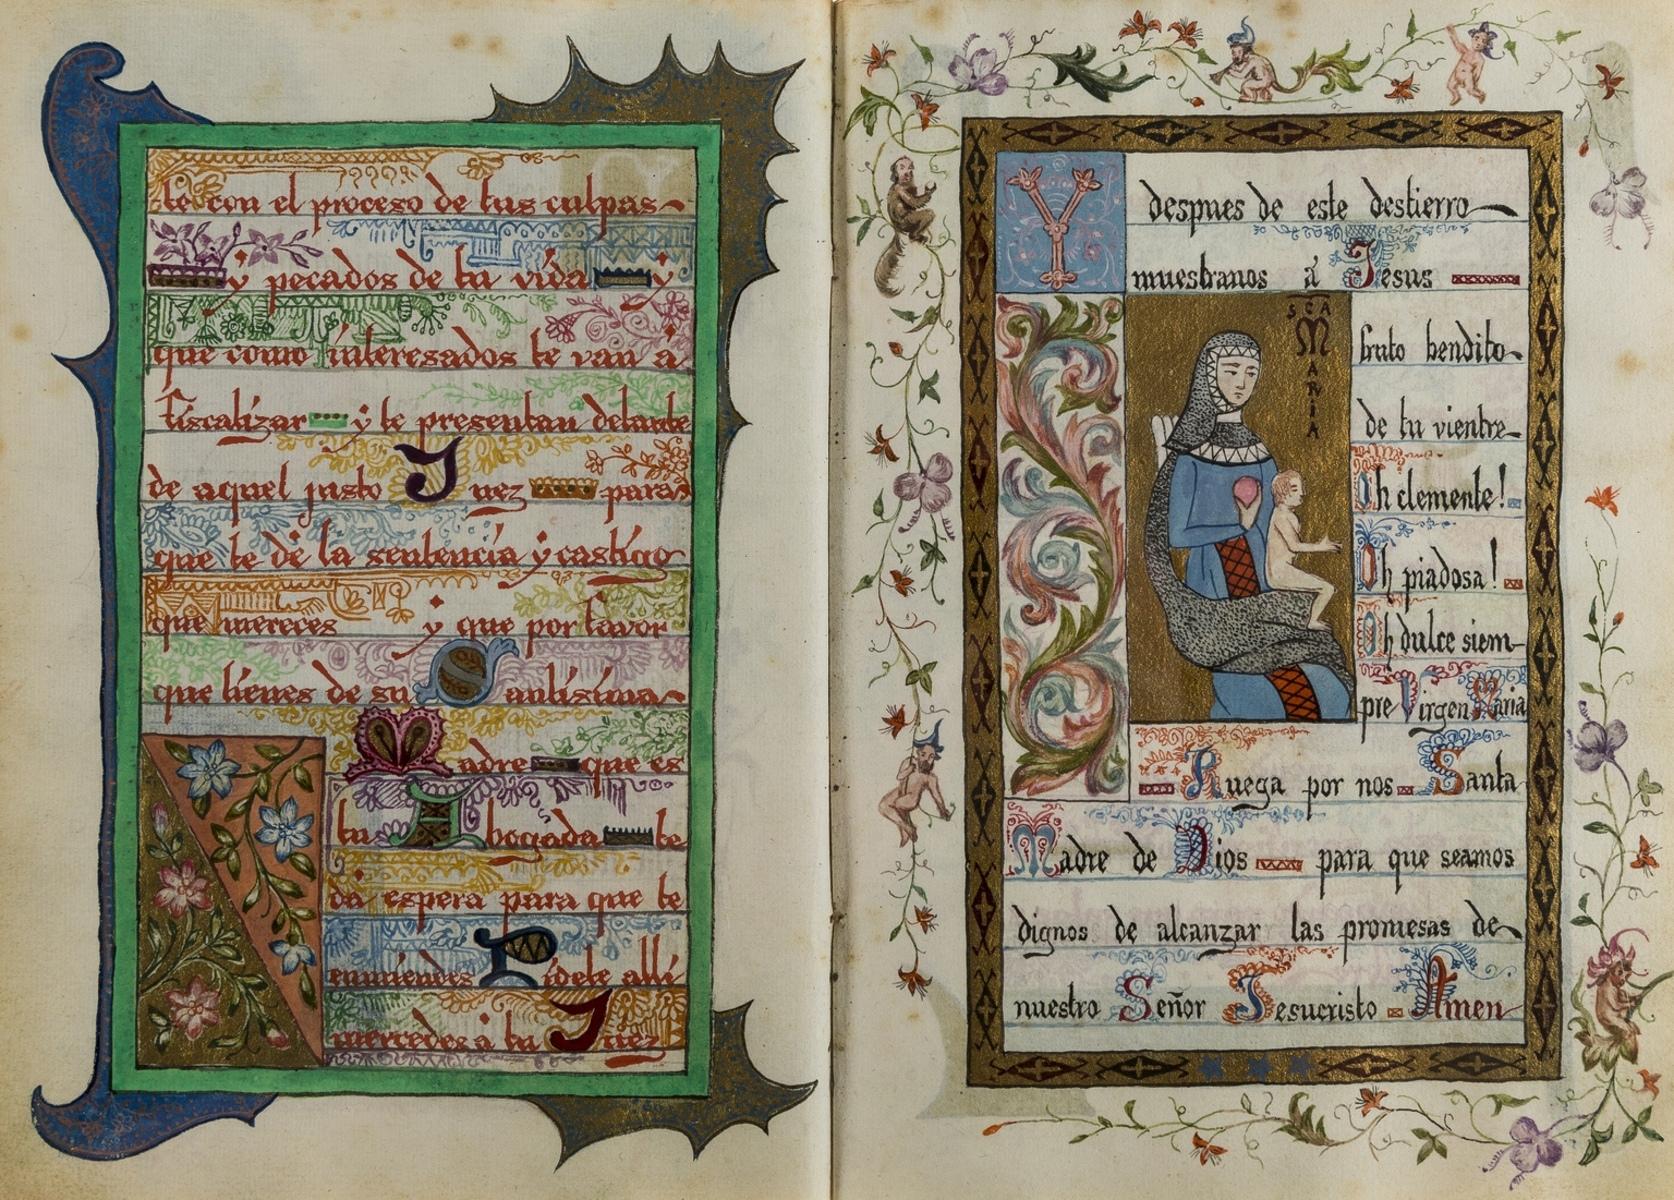 te con el proceso de tus culpas
y pecados de tu vida y
que como interesados te van á
fiscalizar y te presentan delante
de aquel justo Juez para
que te dé la sentencia y castigo
que mereces y que por favor
que tienes de su Santísima
Madre que es
tu Abogada te
dá espera para que te
enmiendes Pidele allí
mercedes á tu Juez
Y despues de este destierro
muestranos á Jesus
SCA MARIA
fruto bendito
de tu vientre
Oh clemente!
Oh piadosa!
Oh dulce siem-
pre Virgen Maria
Ruega por nos Santa
Madre de Dios para que seamos
dignos de alcanzar las promesas de
nuestro Señor Jesucristo Amen